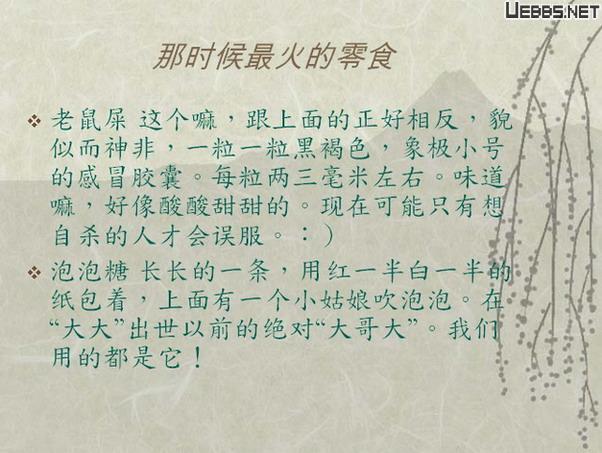 UEBBS.NET
那时候最火的零食
老鼠屎 这个嘛，跟上面的正好相反，貌
似而神非，一粒一粒黑褐色，象极小号
的感冒胶囊。每粒两三毫米左右。味道
嘛，好像酸酸甜甜的。现在可能只有想
自杀的人才会误服。：）
泡泡糖 长长的一条，用红一半白一半的
纸包着，上面有一个小姑娘吹泡泡。在
“大大”出世以前的绝对“大哥大”。我们
用的都是它！